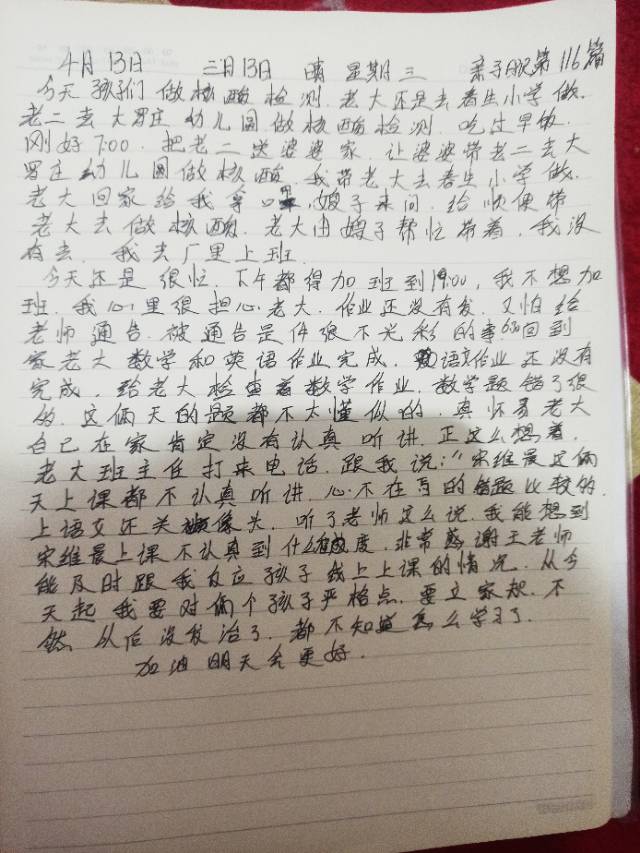 4月13日 三月13日 晴 星期三 亲子日记第116篇
今天孩子们做核酸检测.老大还是去春生小学做.
老二去大罗庄幼儿园做核酸检测.吃过早饭.
刚好7:00.把老二送婆婆家.让婆婆带老二去大
罗庄幼儿园做核酸.我带老大去春生小学做.
老大回家给我拿口罩.嫂子来问.给顺便带
老大去做核酸.老大由嫂子帮忙带着.我没
有去.我去厂里上班.
今天还是很忙.下午都得加班到19:00,我不想加
班.我心里很担心老大.作业还没有发.又怕给
老师通告.被通告是件很不光彩的事.回到
家老大数学和英语作业完成.语文作业还没有
完成.给老大检查着数学作业.数学题错了很
多.这俩天的题都不大懂似的.真怀疑老大
自己在家肯定没有认真听讲.正这么想着.
老大班主任打来电话.跟我说:"宋维晨这俩
天上课都不认真听讲.心不在焉的答题比较的.
上语文还关摄像头.听了老师这么说.我能想到
宋维晨上课不认真到什么程度.非常感谢王老师
能及时跟我反应孩子线上上课的情况.从今
天起我要对俩个孩子严格点.要立家规.不
然从后没发治了.都不知道怎么学习了.
加油明天会更好.